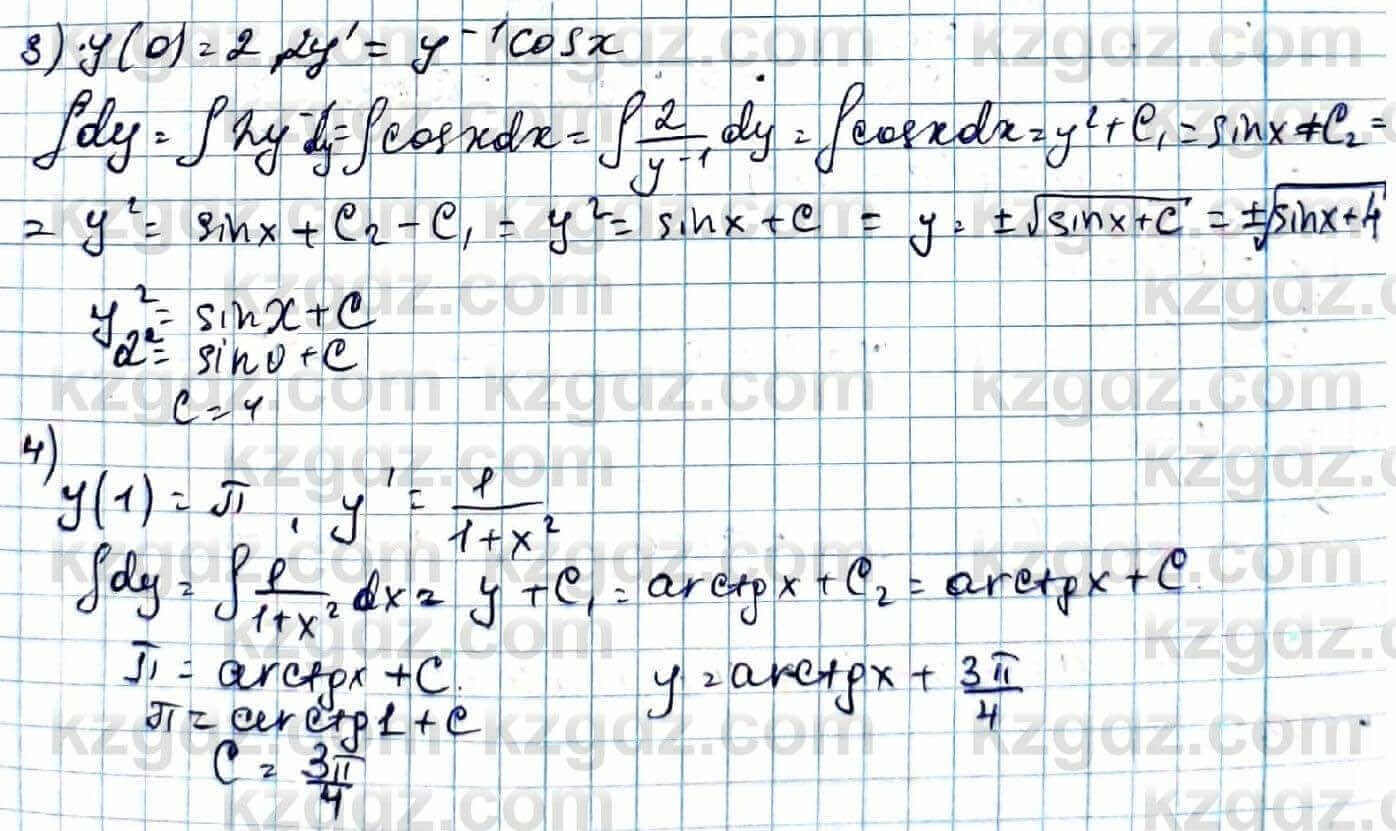 3) y(0) = 2, 2y' = y⁻¹cosx
∫dy = ∫2y dy = ∫cosxdx = ∫2/y⁻¹ dy = ∫cosxdx = y² + C₁ = sinx + C₂ =
= y² = sinx + C₂ - C₁ = y² = sinx + C = y = ±√sinx+C = ±√sinx+4
y² = sinx + C
2² = sin0 + C
C = 4
4)
y(1) = π, y' = 1/1+x²
∫dy = ∫1/1+x² dx = y + C₁ = arctgx + C₂ = arctgx + C.
π = arctgx + C. y = arctgx + 3π/4
π = arctg1 + C
C = 3π/4
kzgdz.com